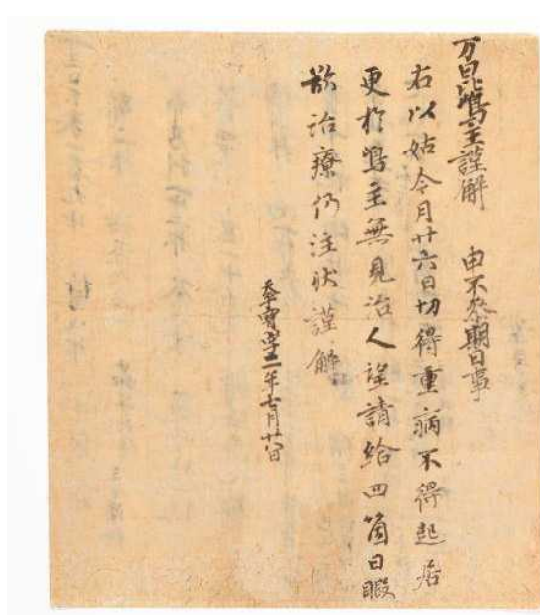 万昆嶋主謹解　申不参期日事
右以姑今月廿六日切得重病不得起居
更於嶋主無見治人望請給四箇日暇
欲治療仍注状謹解
天平寶字二年七月廿八日